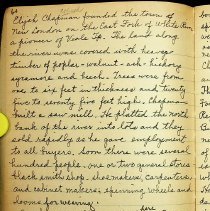 64
Elijah Chapman founded the town of
New London on The East Fork of White River,
a pioneer of Noble Tp. The land along
the river was covered with heavy
timber of poplar - walnut - ash - hickory
sycamore and beech. Trees were from
one to six feet in thickness and twenty
five to seventy five feet high. Chapman
built a saw mill. He platted the north
bank of the river into lots and they
sold rapidly as he gave employment
to all buyers. Soon there were several
hundred people, one or two general stores
black smith shop, shoe makers, carpenters,
and cabinet makers, spinning wheels and
looms for weaving.